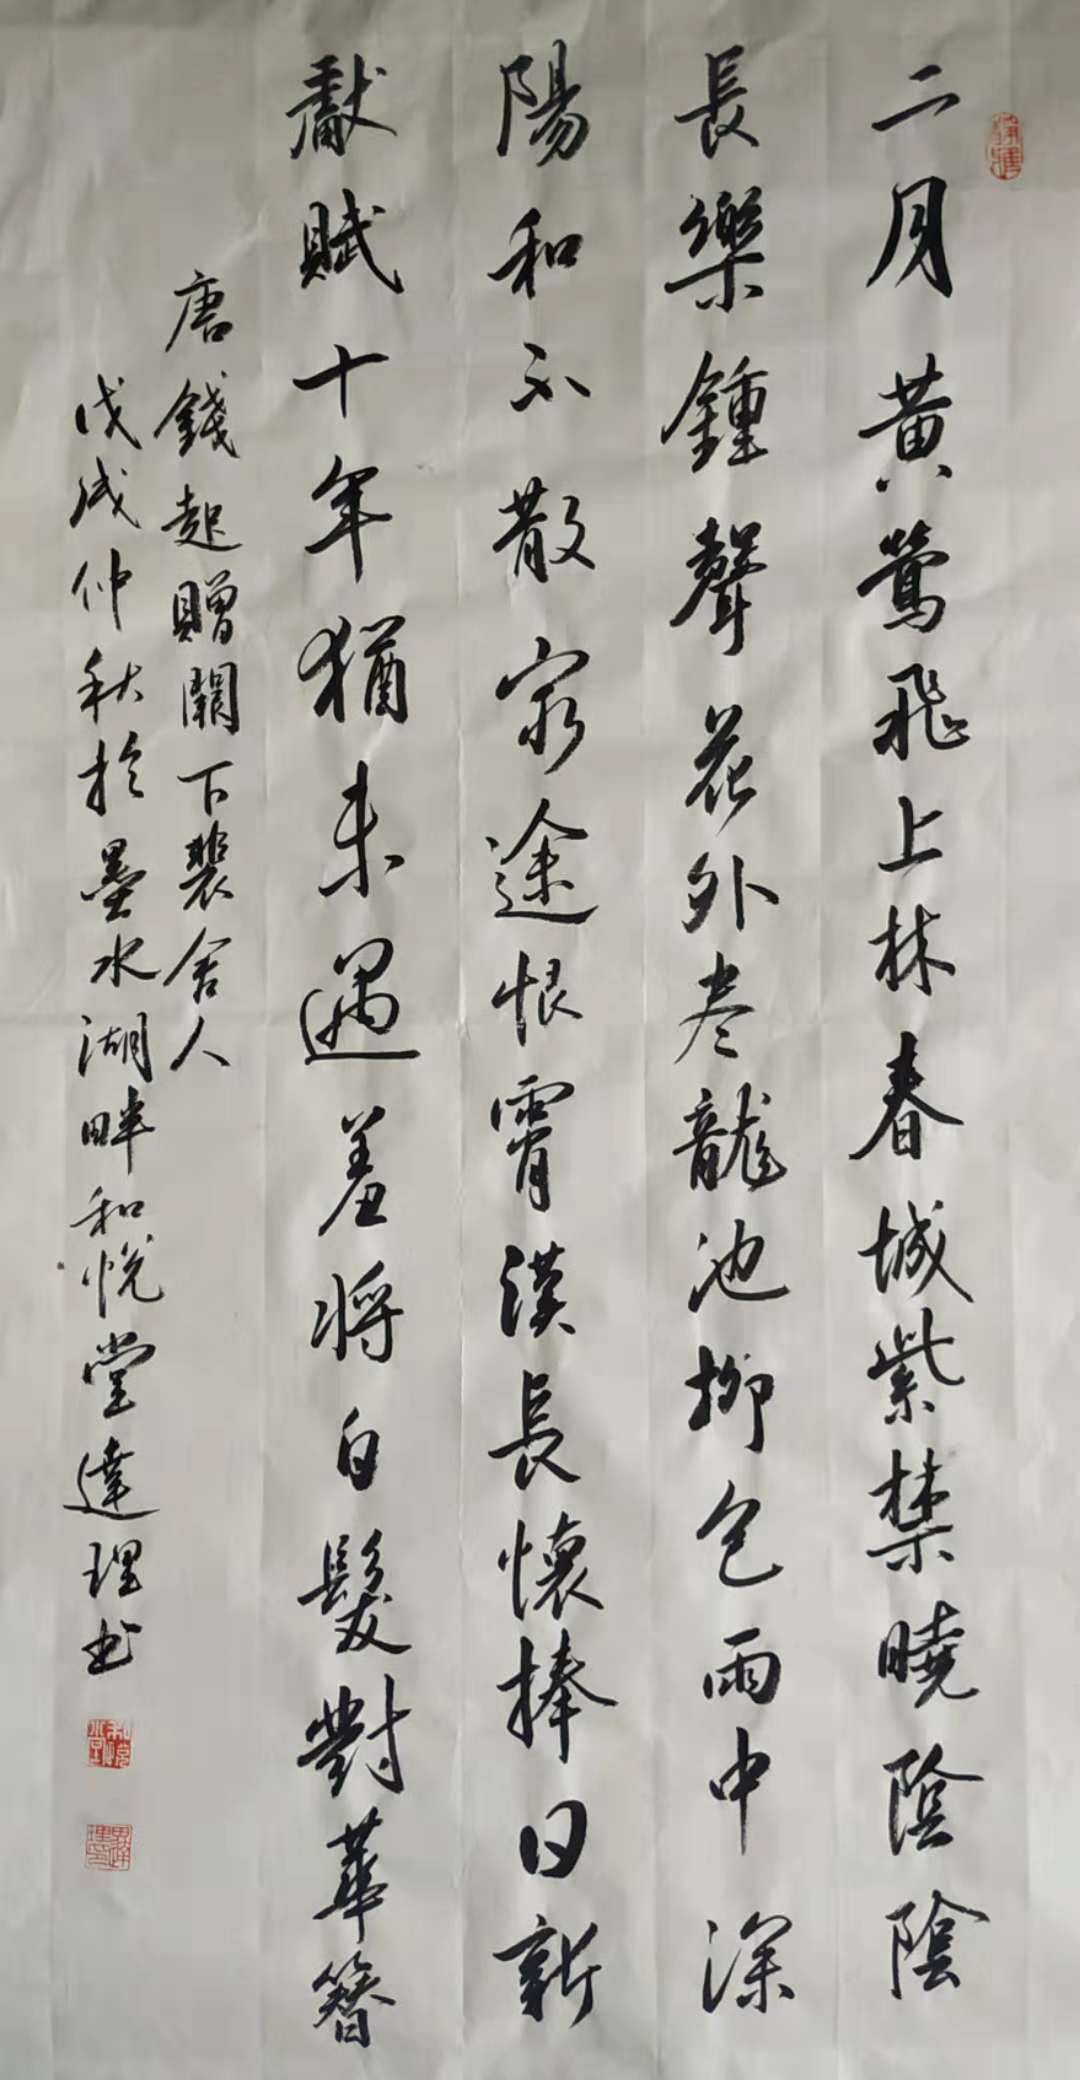 二月黃鶯飛上林春城紫禁曉陰陰
長樂鍾聲花外尽龍池柳色雨中深
陽和不散窮途恨霄漢長懷捧日新
獻賦十年猶未遇羞將白髮對華簪
唐錢起贈闕下裴舍人
戊戌仲秋於墨水湖畔和悅堂達理书
和悅堂